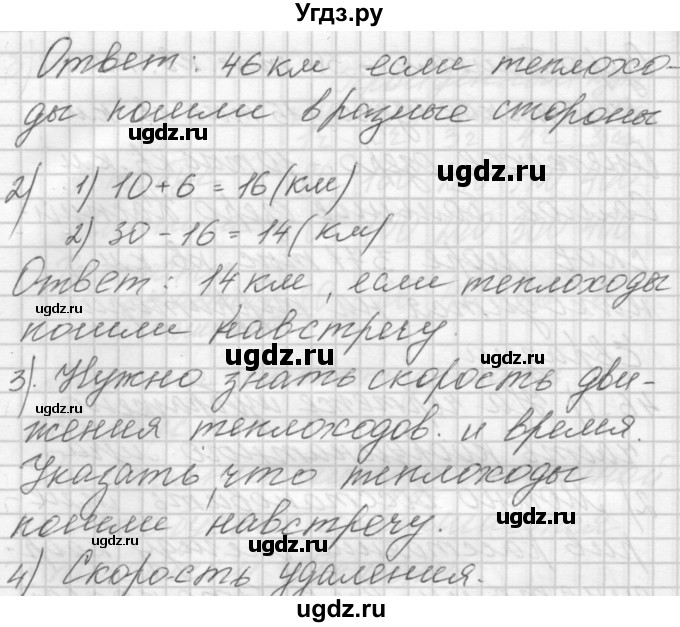 Угдз.ру
Ответ: 46 км если теплохо-
ды пошли в разные стороны
ugdz.ru
ugdz.ru
2) 1) 10 + 6 = 16 (км)
2) 30 - 16 = 14 (км)
Ответ: 14 км, если теплоходы
ugdz.ru
ugdz.ru
пошли навстречу.
ugdz.ru
ugdz.ru
3). Нужно знать скорость дви-
ugdz.ru
жения теплоходов. и время.
Указать, что теплоходы
ugdz.ru
ugdz.ru
пошли навстречу.
ugdz.ru
ugdz.ru
4) Скорость удаления.
ugdz.ru
ugdz.ru